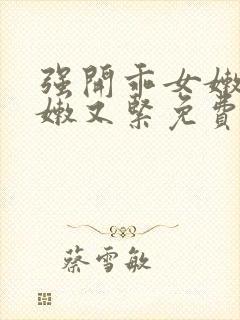 强開乖女嫩
嫩又緊免費
蔡雪敏